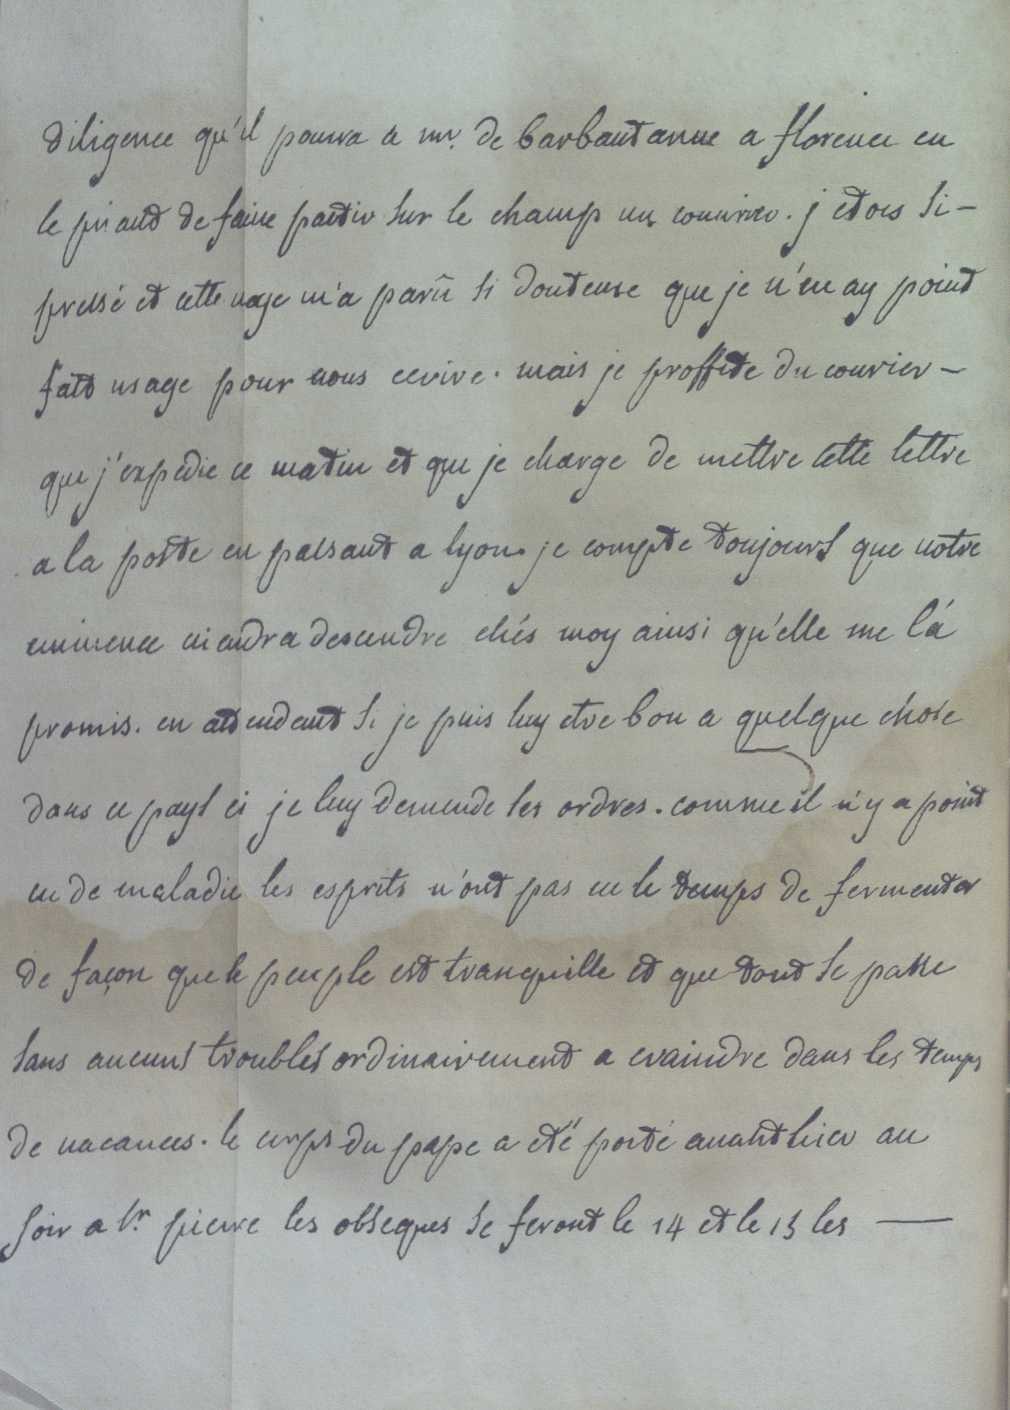 diligence qu'il pourra a mr. de barbantanne a florence en
le priant de faire partir sur le champ un courrier. j etois si-
pressé et cette voye m'a parû si douteuse que je n'en ay point
fait usage pour vous ecrire. mais je proffite du courier-
que j'expedie ce matin et que je charge de mettre cette lettre
a la poste en passant a lyon. je compte toujours que votre
eminence viendra descendre chés moy ainsi qu'elle me l'a
promis. en attendant si je puis luy etre bon a quelque chose
dans ce pays ci je luy demende ses ordres. comme il n'y a point
eu de maladie les esprits n'ont pas eu le temps de fermenter
de façon que le peuple est tranquille et que tout se passe
sans aucuns troubles ordinairement a craindre dans les temps
de vacances. le corps du pape a eté porté avanthier au
soir a st. pierre les obseques se feront le 14 et le 15 les —